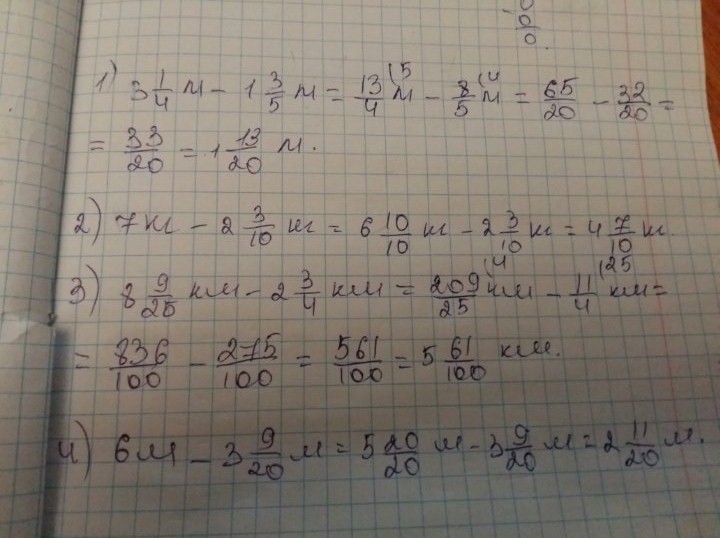 0
0
0.
1) 3 1/4 м - 1 3/5 м = 13/4 (5 м - 8/5 (4 м = 65/20 - 32/20 =
= 33/20 = 1 13/20 м.
2) 7 кг - 2 3/10 кг = 6 10/10 кг - 2 3/10 кг = 4 7/10 кг.
3) 8 9/25 км - 2 3/4 км = 209/25 (4 км - 11/4 (25 км =
= 836/100 - 275/100 = 561/100 = 5 61/100 км.
4) 6 м - 3 9/20 м = 5 20/20 м - 3 9/20 м = 2 11/20 м.